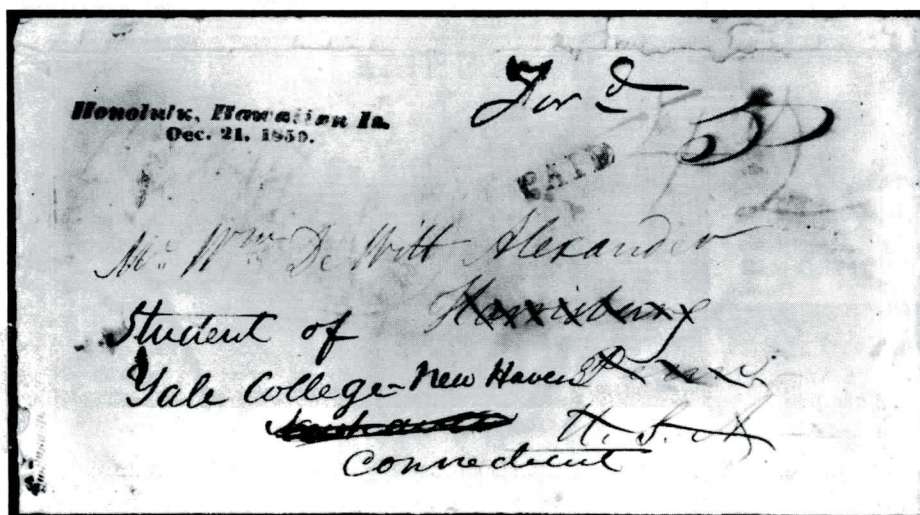 Honolulu, Hawaiian Is.
Dec. 21. 1850.
For'd 5
PAID
Mr. Wm De Witt Alexander
Harrisburg
Student of
Yale College - New Haven Penn
U. S. A
Connecticut